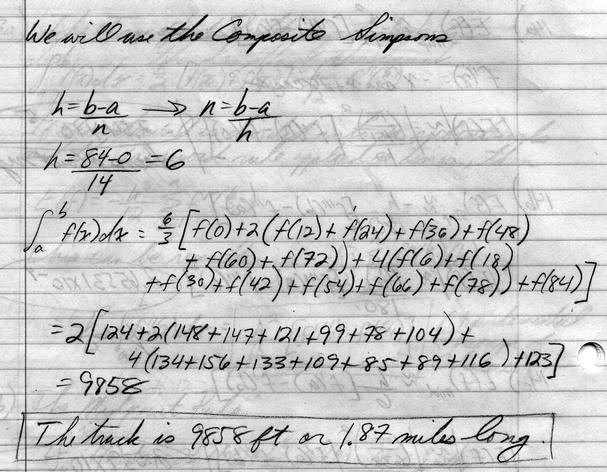 We will use the Composite Simpsons
h = b-a/n → n = b-a/h
h = 84-0/14 = 6
∫ₐᵇ f(x)dx = 6/3 [f(0)+2(f(12)+f(24)+f(36)+f(48)
+ f(60)+f(72))+4(f(6)+f(18)
+f(30)+f(42)+f(54)+f(66)+f(78))+f(84)]
= 2[124+2(148+147+121+99+78+104)+
4(134+156+133+109+85+89+116)+123]
= 9858
The track is 9858 ft or 1.87 miles long.